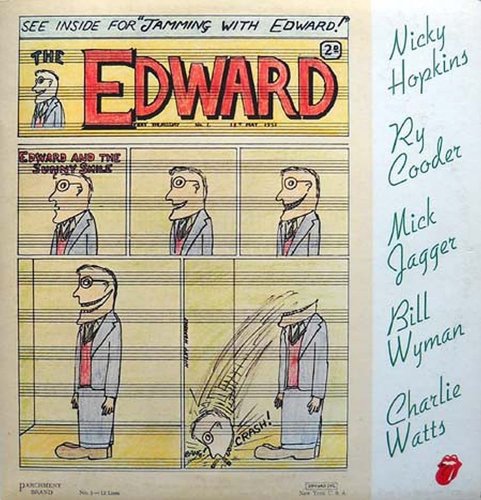 SEE INSIDE FOR "JAMMING WITH EDWARD!"
THE EDWARD
2D
EVERY THURSDAY No. 1. 18TH MAY 1951
EDWARD AND THE
SUNNY SMILE
BANG!
CRASH!
PARCHMENT
BRAND
No. 3—12 Lines
New York U. S. A.
Nicky
Hopkins
Ry
Cooder
Mick
Jagger
Bill
Wyman
Charlie
Watts